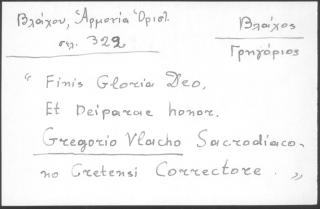 Βλάχου, Ἁρμονία Ὁριστ.
σελ. 322
Βλάχος
Γρηγόριος
“ Finis Gloria Deo,
Et Deiparae honor.
Gregorio Vlacho Sacrodiaco-
no Cretensi Correctore . „